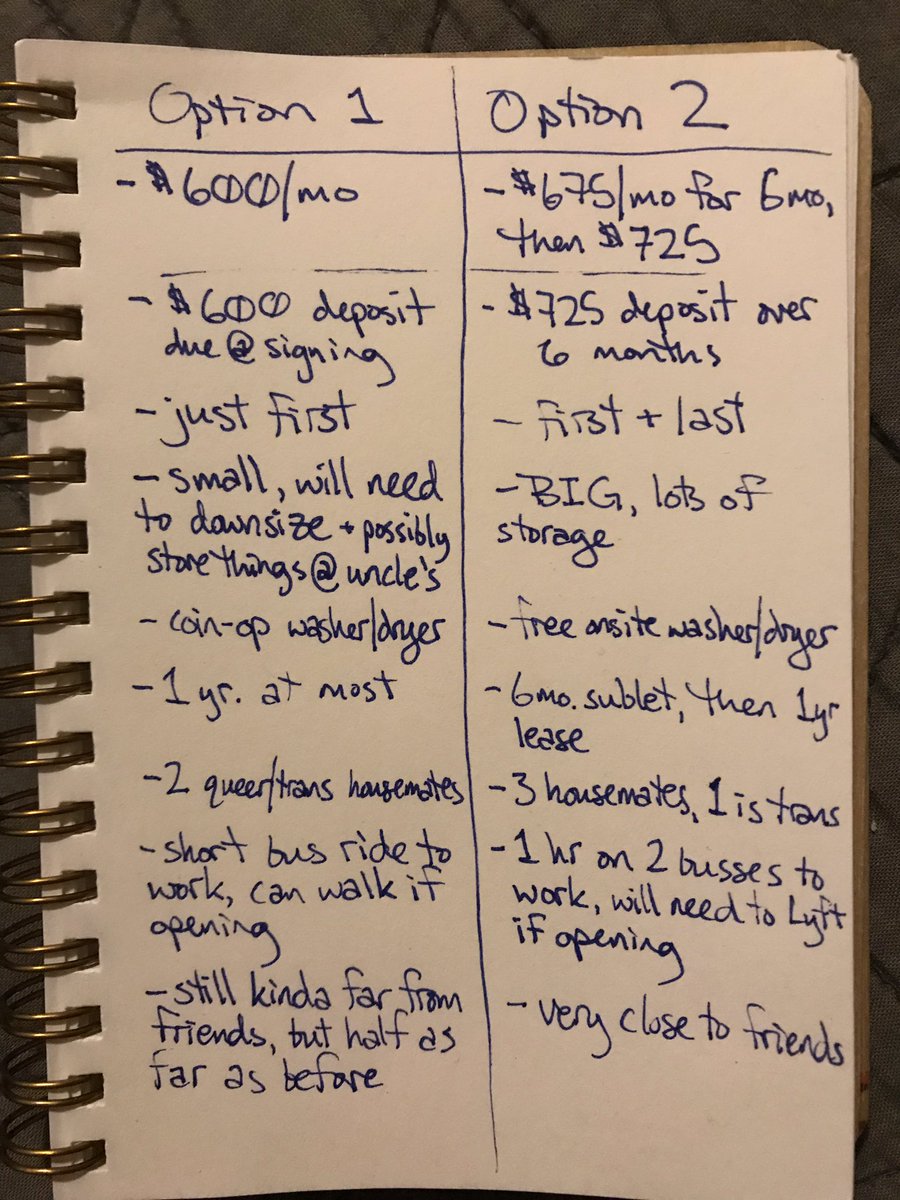 Option 1
- $600/mo
- $600 deposit
due @ signing
- just first
- small, will need
to downsize + possibly
store things @ uncle's
- coin-op washer/dryer
- 1 yr. at most
- 2 queer/trans housemates
- short bus ride to
work, can walk if
opening
- still kinda far from
friends, but half as
far as before
Option 2
- $675/mo for 6mo,
then $725
- $725 deposit over
6 months
- first + last
- BIG, lots of
storage
- free onsite washer/dryer
- 6mo. sublet, then 1yr
lease
- 3 housemates, 1 is trans
- 1 hr on 2 busses to
work, will need to Lyft
if opening
- very close to friends